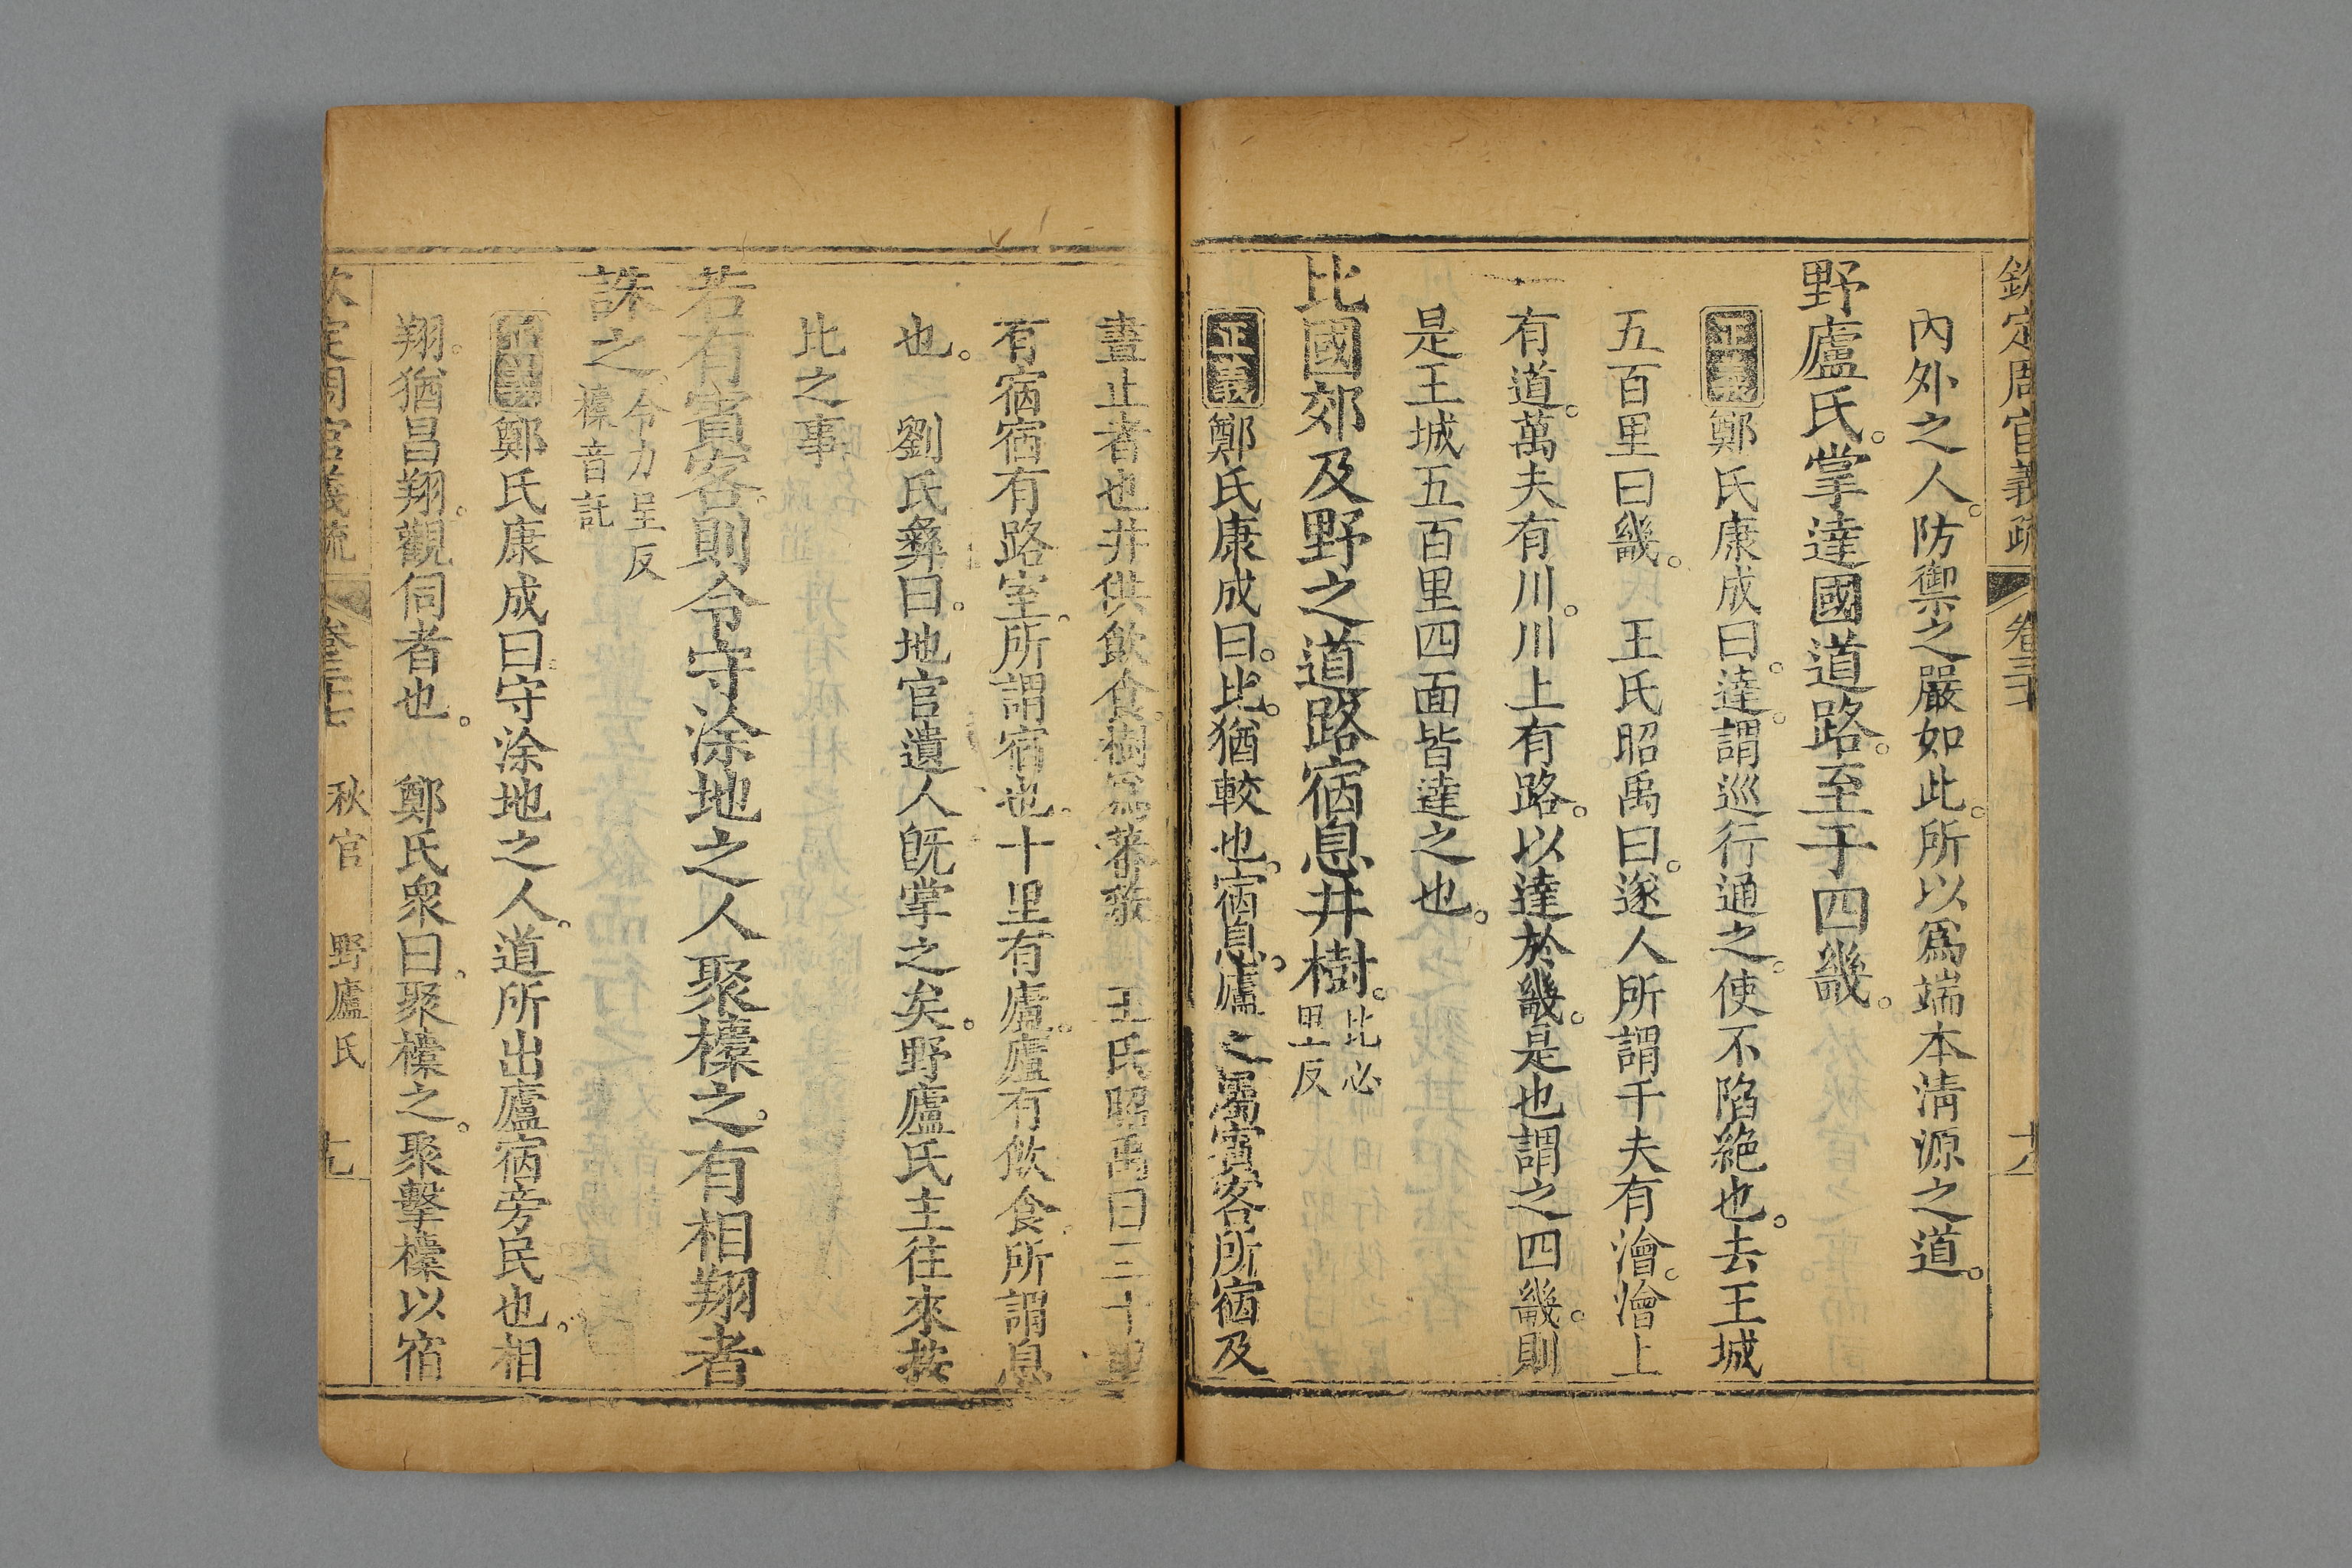 欽定周官義疏 卷三十 大
內外之人。防禦之嚴如此。所以爲端本淸源之道。
野廬氏。掌達國道路。至于四畿。
正義鄭氏康成曰。達。謂巡行通之。使不陷絶也。去王城
五百里曰畿。 王氏昭禹曰。遂人所謂千夫有澮。澮上
有道。萬夫有川。川上有路。以達於畿。是也謂之四畿。則
是王城五百里四面皆達之也。
比國郊及野之道路宿息井樹。比必
里反
正義鄭氏康成曰。比。猶較也。宿息。廬之屬賓客所宿及
晝止者也井供飮食。樹爲蕃蔽 王氏昭禹曰三十里
有宿宿有路室。所謂宿也。十里有廬。廬有飲食。所謂息
也。 劉氏彝曰。地官遺人旣掌之矣。野廬氏主往來按
比之事
若有賓客。則令守涂地之人聚㯓之。有相翔者
誅之。令力呈反
㯓音託
正義鄭氏康成曰。守涂地之人。道所出廬宿旁民也。相
翔。猶昌翔。觀伺者也。 鄭氏衆曰。聚㯓之。聚擊㯓以宿
欽定周官義疏 卷三十七 秋官 野廬氏 九